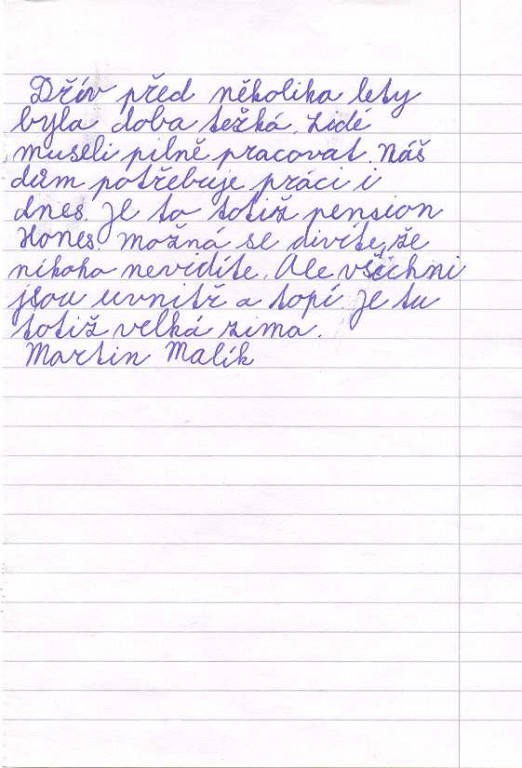 Dřív před několika lety
byla doba težká. Lidé
museli pilně pracovat. Náš
dům potřebuje práci i
dnes. Je to totiž pension
Hones. Možná se divíte, že
nikoho nevidíte. Ale všichni
jsou uvnitř a topí. Je tu
totiž velká zima.
Martin Malík